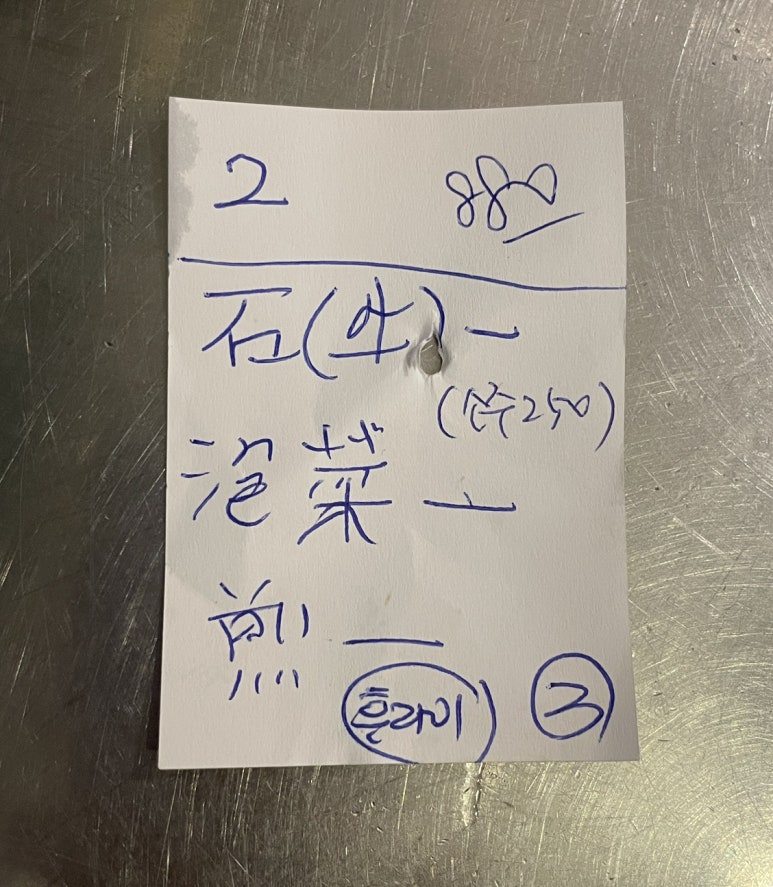 2 880
石(牛)一
250)
泡菜一
煎一
후라이 3